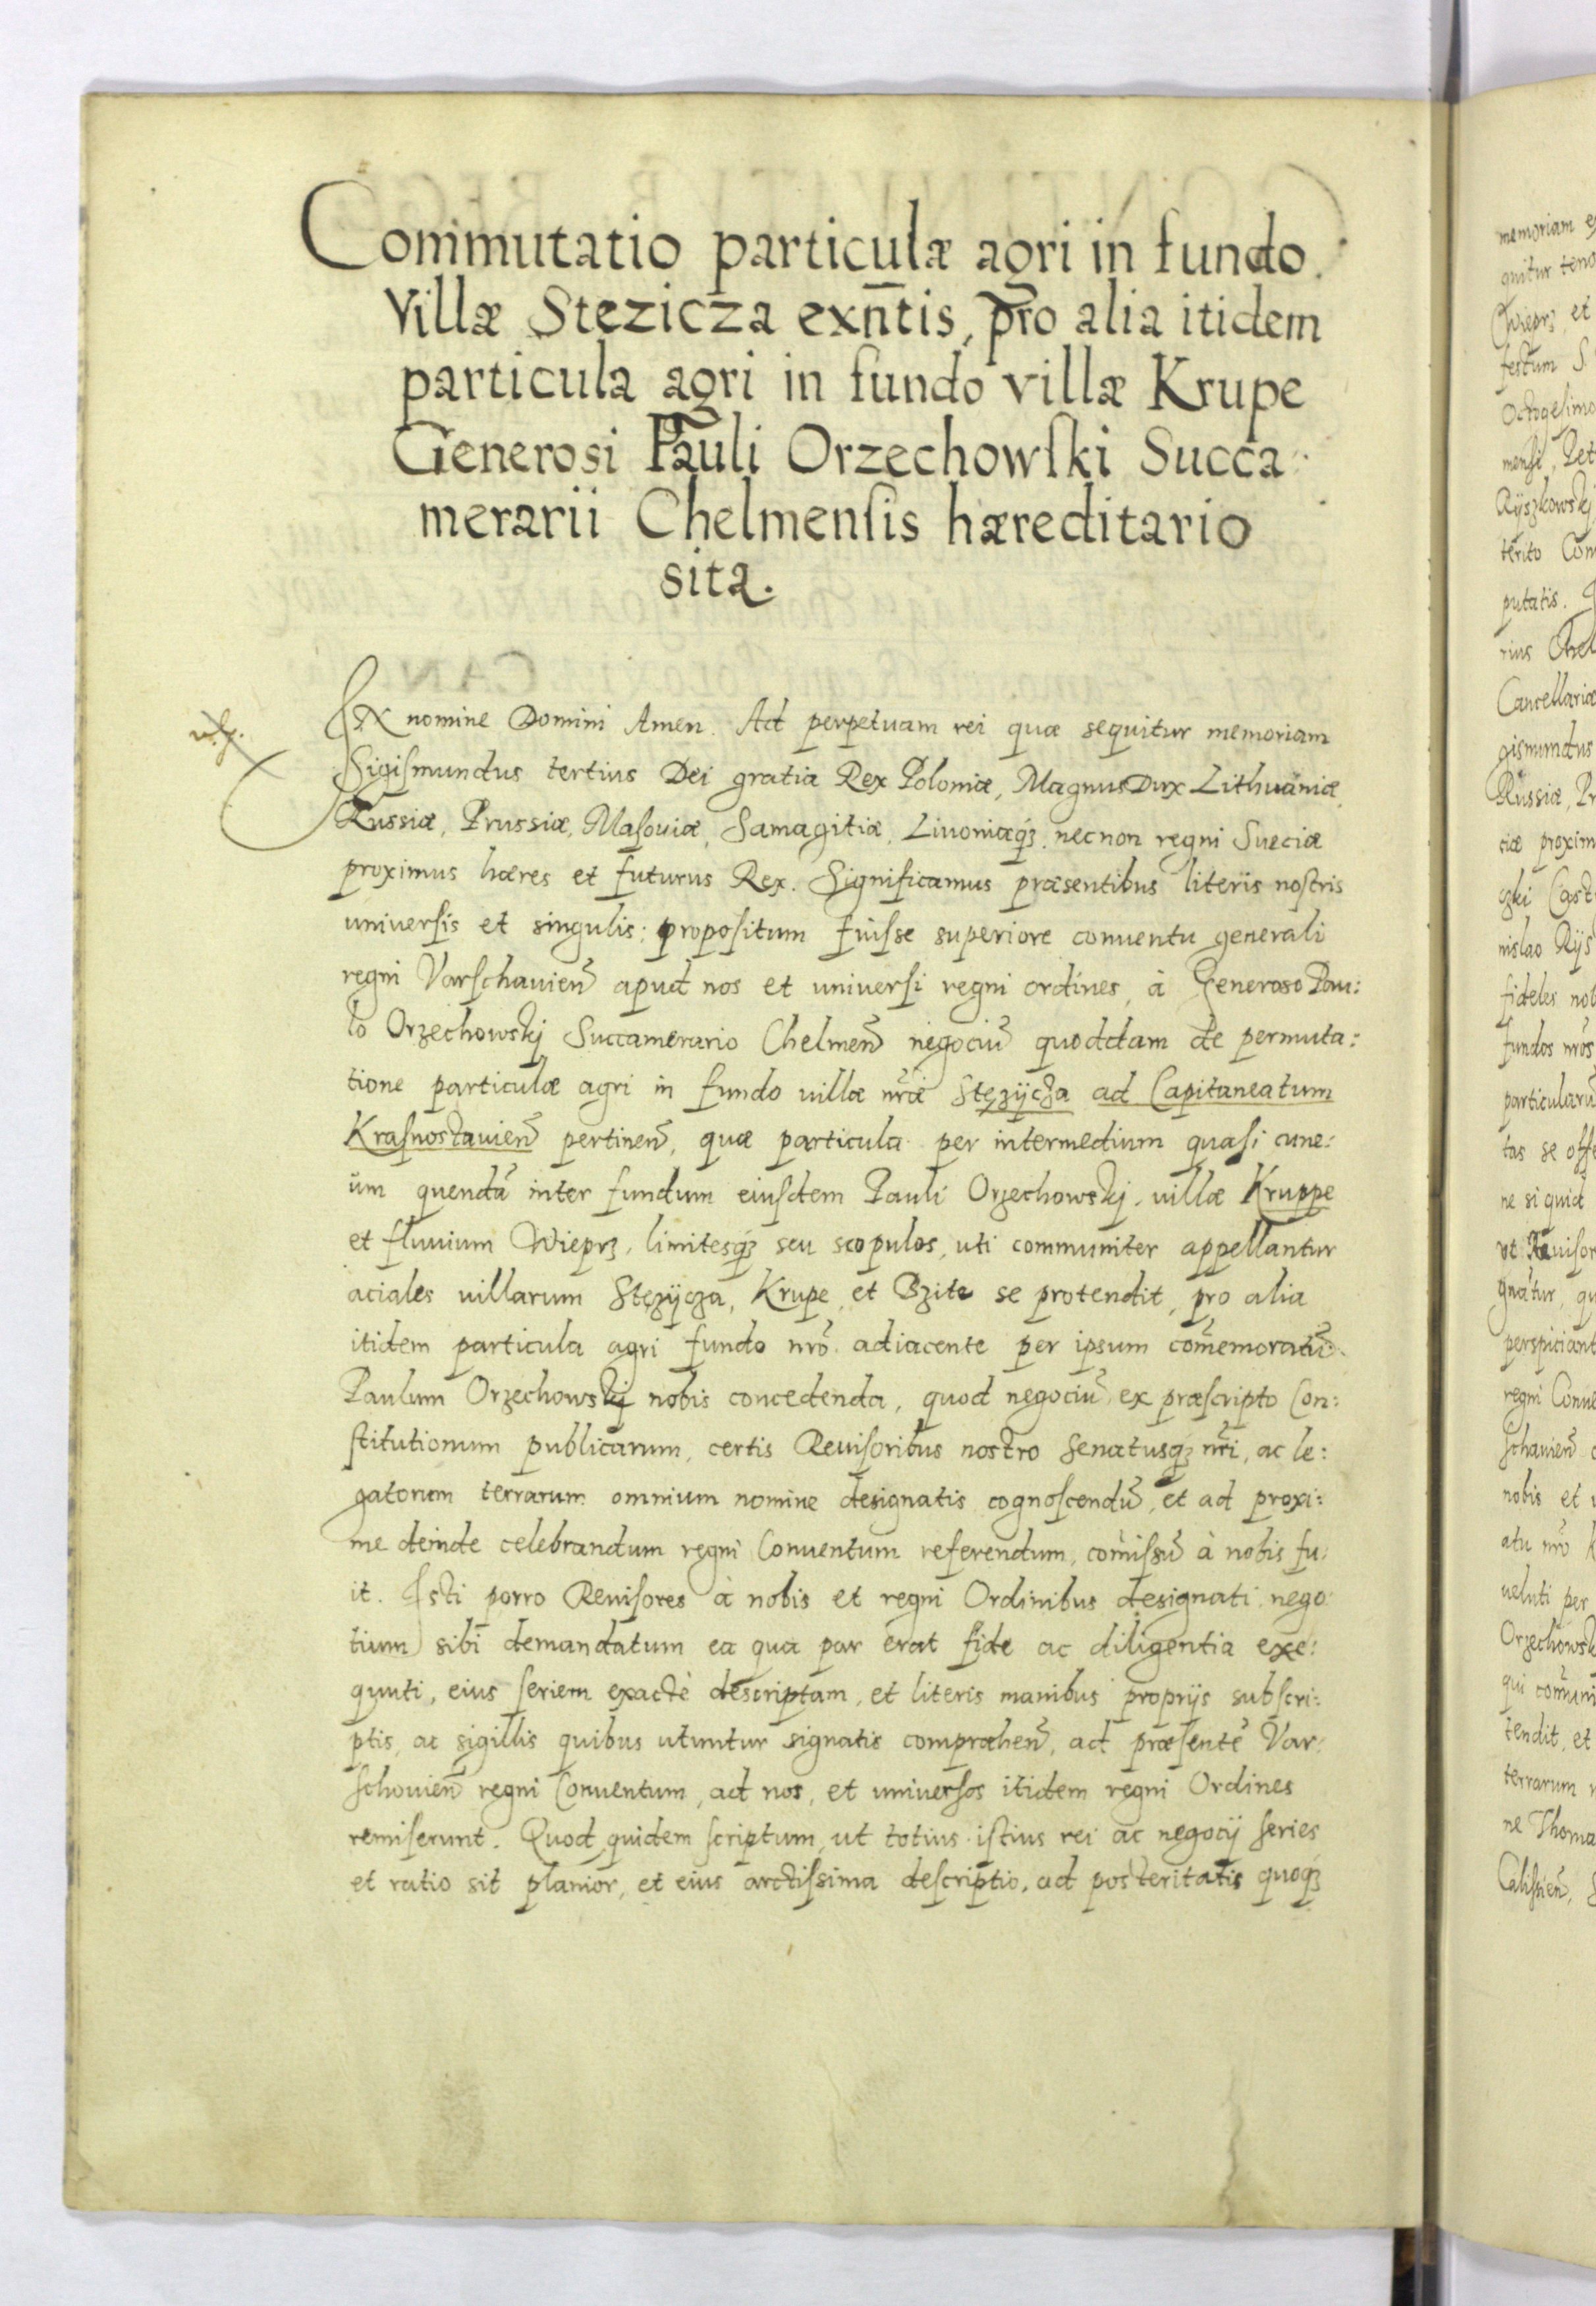 Commutatio particulæ agri in fundo
Villæ Stezicza exñtis, pro alia itidem
particula agri in fundo villæ Krupe
Generosi Pauli Orzechowſki Succa
merarii Chelmenſis hæreditario
sita.
IN nomine Domini Amen. Ad perpetuam rei quæ sequitur memoriam
Sigiſmundus tertius Dei gratia Rex Poloniæ, Magnus Dux Lithuaniæ,
Russiæ, Prussiæ, Maſouiæ, Samagitiæ, Liuoniæqꝫ. necnon regni Sueciæ
proximus hæres et futurus Rex. Significamus præsentibus literis nostris
universis et singulis; propositum fuiſse superiore conuentu generali
regni Varſchauien̄ apud nos et universi regni ordines, à Generoso Pau:
lo Orzechowskj Succamerario Chelmen̄ negociū quoddam de permuta:
tione particulæ agri in fundo villæ nr̄æ Stęzijcza ad Capitaneatum
Kraſnostauien̄ pertinen̄, quæ particula per intermedium quaſi cune:
um quendā inter fundum eiuſdem Pauli Orzechowskj. villæ Kruppe
et fluuium Wieprz, limitesqꝫ seu scopulos, uti communiter appellantur
aciales villarum Stęzijcza, Krupe, et Bzite se protendit, pro alia
itidem particula agri fundo nrō. adiacente per ipsum com̄emoratū
Paulum Orzechowskj nobis concedenda, quod negociū ex præscripto Con:
ſtitutionum publicarum, certis Reuiſoribus nostro Senatusqꝫ nr̄i, ac le:
gatorum terrarum omnium nomine designatis cognoſcendū, et ad proxi:
me deinde celebrandum regni Conuentum referendum, com̄iſsū à nobis fu:
it. Iſti porro Reuiſores à nobis et regni Ordinibus designati, nego
tium sibi demandatum ea qua par erat fide ac diligentia exe:
quuti, eius ſeriem exactè descriptam, et literis manibus proprijs subſcri:
ptis, ac sigillis quibus utuntur signatis compræhen̄, ad præſentē Var:
ſchouien̄ regni Conuentum, ad nos, et universos itidem regni Ordines
remiſerunt. Quod quidem scriptum, ut totius iſtius rei ac negocij ſeries
et ratio sit planior, et eius arctiſsima deſcriptio, ad posteritatis quoqꝫ